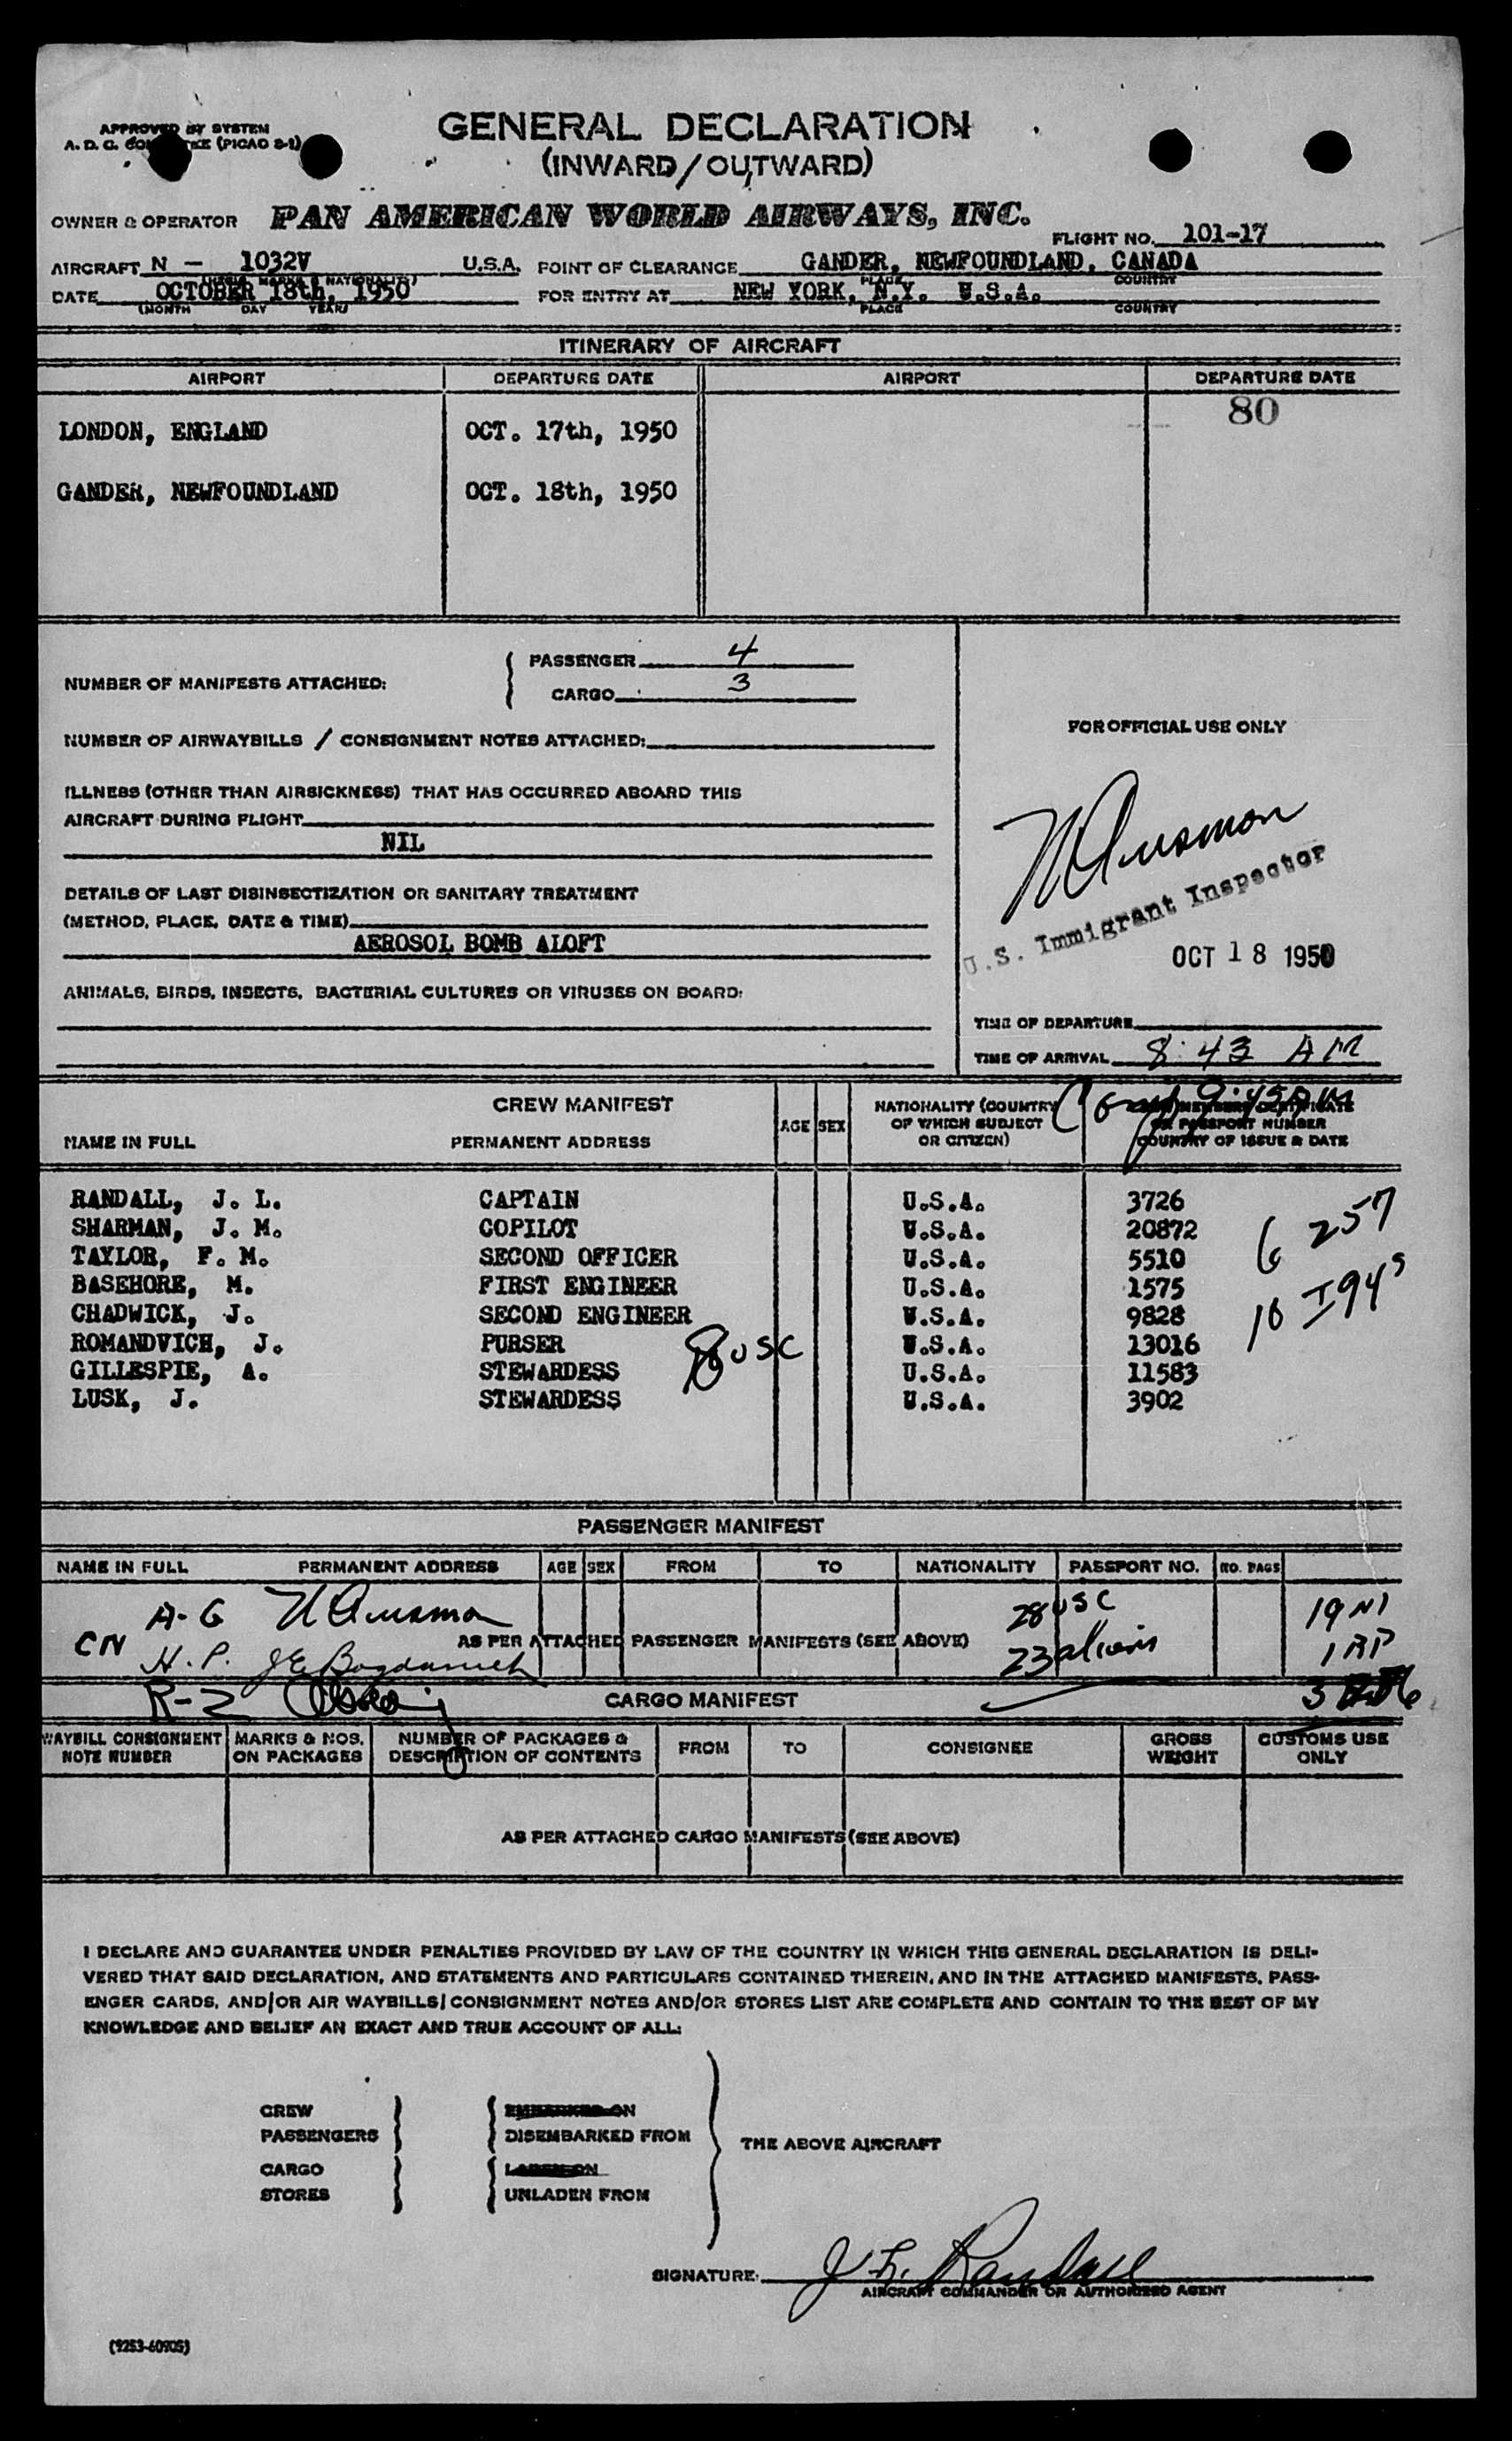 APPROVED BY SYSTEM
A. D. C. (PICAO S-1)
GENERAL DECLARATION
(INWARD/OUTWARD)
OWNER & OPERATOR PAN AMERICAN WORLD AIRWAYS, INC.
FLIGHT NO. 101-17
AIRCRAFT N - 1032V U.S.A. POINT OF CLEARANCE GANDER, NEWFOUNDLAND, CANADA
DATE OCTOBER 18th, 1950 FOR ENTRY AT NEW YORK, N.Y. U.S.A.
(MONTH DAY YEAR) PLACE COUNTRY
ITINERARY OF AIRCRAFT
AIRPORT DEPARTURE DATE AIRPORT DEPARTURE DATE
80
LONDON, ENGLAND OCT. 17th, 1950
GANDER, NEWFOUNDLAND OCT. 18th, 1950
NUMBER OF MANIFESTS ATTACHED:
PASSENGER 4
CARGO 3
NUMBER OF AIRWAYBILLS / CONSIGNMENT NOTES ATTACHED:
ILLNESS (OTHER THAN AIRSICKNESS) THAT HAS OCCURRED ABOARD THIS
AIRCRAFT DURING FLIGHT
NIL
DETAILS OF LAST DISINSECTIZATION OR SANITARY TREATMENT
(METHOD, PLACE, DATE & TIME)
AEROSOL BOMB ALOFT
ANIMALS, BIRDS, INSECTS, BACTERIAL CULTURES OR VIRUSES ON BOARD:
FOR OFFICIAL USE ONLY
U.S. Immigrant Inspector
OCT 18 1950
TIME OF DEPARTURE
TIME OF ARRIVAL 8:43 AM
CREW MANIFEST
NAME IN FULL PERMANENT ADDRESS AGE SEX NATIONALITY (COUNTRY OF WHICH SUBJECT OR CITIZEN) CREW MEMBERS CERTIFICATE OR PASSPORT NUMBER COUNTRY OF ISSUE & DATE
9:45 AM
RANDALL, J. L. CAPTAIN U.S.A. 3726
SHARMAN, J. M. COPILOT U.S.A. 20872
TAYLOR, F. M. SECOND OFFICER U.S.A. 5510
BASEHORE, M. FIRST ENGINEER U.S.A. 1575
CHADWICK, J. SECOND ENGINEER U.S.A. 9828
ROMANDVICH, J. PURSER U.S.A. 13016
GILLESPIE, A. STEWARDESS U.S.A. 11583
LUSK, J. STEWARDESS U.S.A. 3902
8 USC
6 257
16 I94s
PASSENGER MANIFEST
NAME IN FULL PERMANENT ADDRESS AGE SEX FROM TO NATIONALITY PASSPORT NO. NO. PAGS
A-G 28 USC 19 NI
CN
AS PER ATTACHED PASSENGER MANIFESTS (SEE ABOVE)
H.P. 23 aliens 1 RP
R-2
CARGO MANIFEST
WAYBILL CONSIGNMENT NOTE NUMBER MARKS & NOS. ON PACKAGES NUMBER OF PACKAGES & DESCRIPTION OF CONTENTS FROM TO CONSIGNEE GROSS WEIGHT CUSTOMS USE ONLY
AS PER ATTACHED CARGO MANIFESTS (SEE ABOVE)
I DECLARE AND GUARANTEE UNDER PENALTIES PROVIDED BY LAW OF THE COUNTRY IN WHICH THIS GENERAL DECLARATION IS DELI-
VERED THAT SAID DECLARATION, AND STATEMENTS AND PARTICULARS CONTAINED THEREIN, AND IN THE ATTACHED MANIFESTS, PASS-
ENGER CARDS, AND/OR AIR WAYBILLS/CONSIGNMENT NOTES AND/OR STORES LIST ARE COMPLETE AND CONTAIN TO THE BEST OF MY
KNOWLEDGE AND BELIEF AN EXACT AND TRUE ACCOUNT OF ALL:
CREW EMBARKED ON
PASSENGERS DISEMBARKED FROM
THE ABOVE AIRCRAFT
CARGO LADEN ON
STORES UNLADEN FROM
SIGNATURE: J. L. Randall
AIRCRAFT COMMANDER OR AUTHORIZED AGENT
(9253-60905)